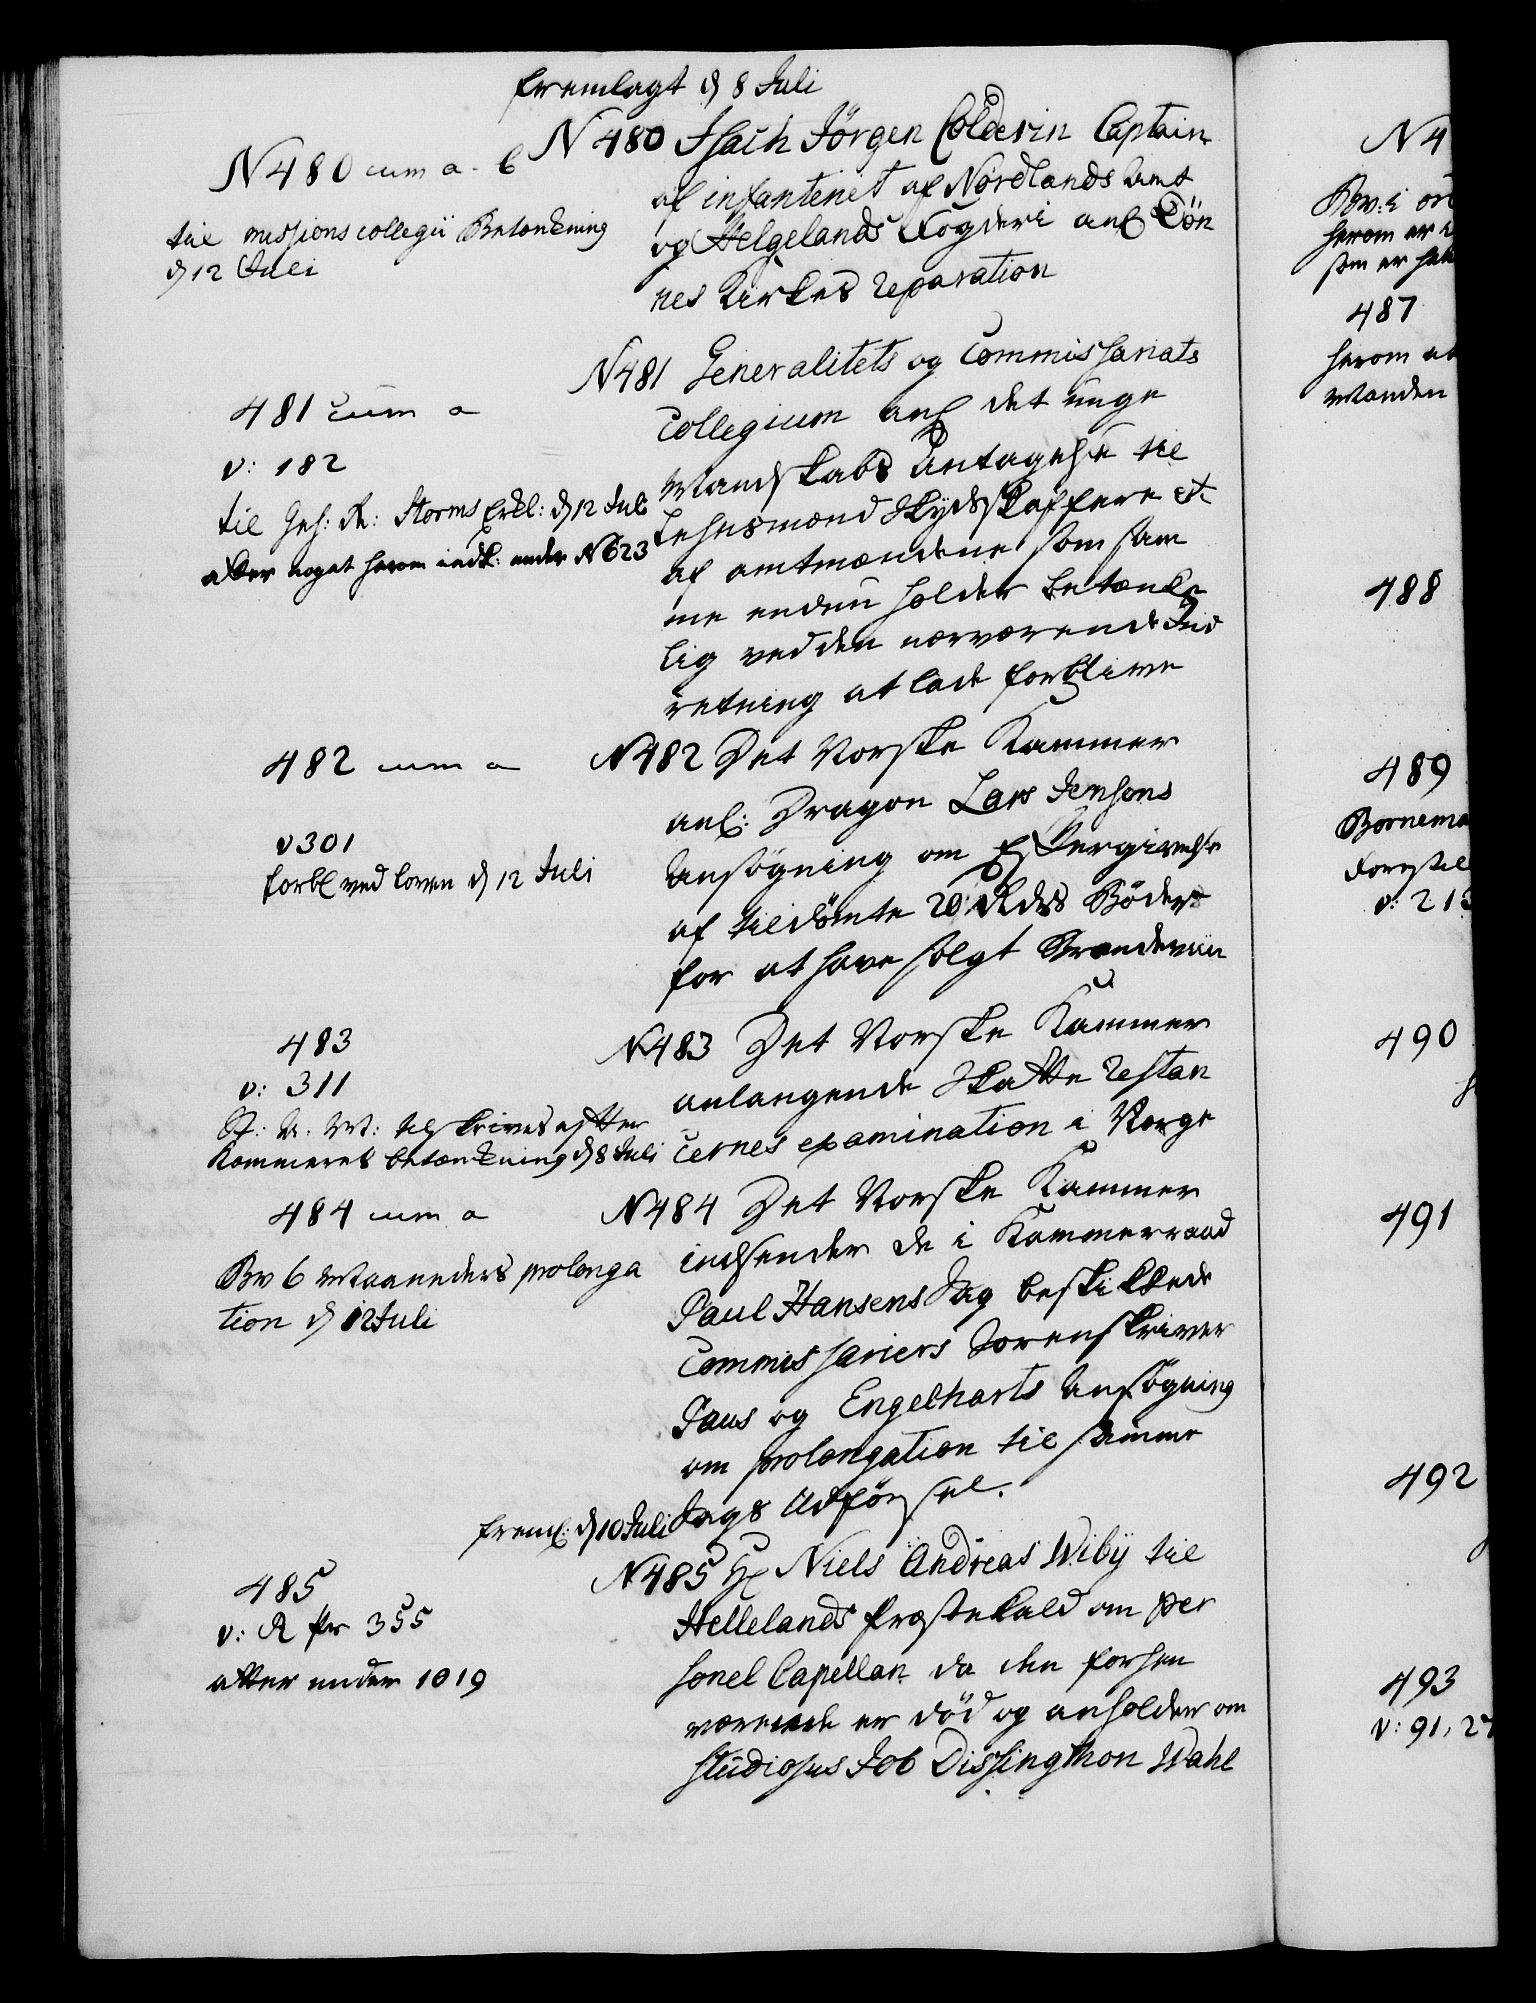 fremlagt d 8 Juli
N 480 cum a. b
til missions collegii Betænkning
d 12 Juli
N 480 Isach Jörgen Colderin Captain
af infanteriet af Nordlands Amt
og Helgelands Fogderi anl Dön
nes Kirkes reparation
481 cum a
v: 182
til Geh: R: Storms Erkl: d 12 Juli
atter noget herom indk: under N 623
N 481 Generalitets og Commissariats
Collegium anl det unge
Mandskabs Antagelse til
Lehnsmænd Skydsskaffere etc
af amtmændene som sam
me endnu holder betænke
lig ved den nærværende Ind
retning at lade forblive
482 cum a
v 301
forbl ved loven d 12 Juli
N 482 Det Norske Kammer
anl: Dragon Lars Jensens
Ansögning om Eftergivelse
af tildömte 20 Rdrs Böder
for at have solgt Brændeviin
483
v: 311
St: A. M: tilskrives efter
Kammerets betænkning d 8 Juli
N 483 Det Norske Kammer
anlangende Skatte restan
cernes examination i Norge
484 cum a
Bv 6 Maaneders prolonga
tion d 12 Juli
N 484 Det Norske Kammer
indsender de i Kammerraad
Paul Hansens Sag beskikkede
Commissariers Sorenskriver
Paus og Engelharts Ansögning
om prolongation til samme
Sags Udförsel.
freml: d 10 Juli
485
v: R pr 355
atter under 1019
N 485 Hr Niels Andreas Wibÿ til
Hellelands Præstekald om per
sonel Capellan da den forhen
værende er död og anholder om
Studiosus Job Dissingthon Wahl
N 4
Bv: i
herom er
som er
487
herom
Manden
488
489
Bornema
Forestil
v: 213
490
491
492
493
v: 91, 27